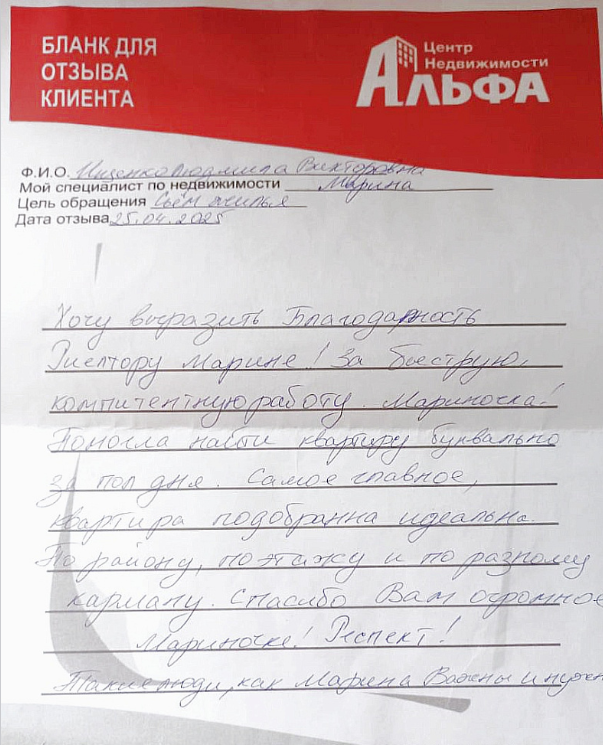 БЛАНК ДЛЯ
ОТЗЫВА
КЛИЕНТА
Центр
Недвижимости
АЛЬФА
Ф.И.О. Ищенко Людмила Викторовна
Мой специалист по недвижимости Марина
Цель обращения Съём жилья
Дата отзыва 25.04.2025
Хочу выразить Благодарность
Риелтору Марине! За быструю,
компитентную работу. Мариночка!
Помогла найти квартиру буквально
за пол дня. Самое главное,
квартира подобранна идеально.
По району, по этажу и по разному
карману. Спасибо Вам огромное
Мариночке! Респект!
Такие люди, как Марина Важны и нужн